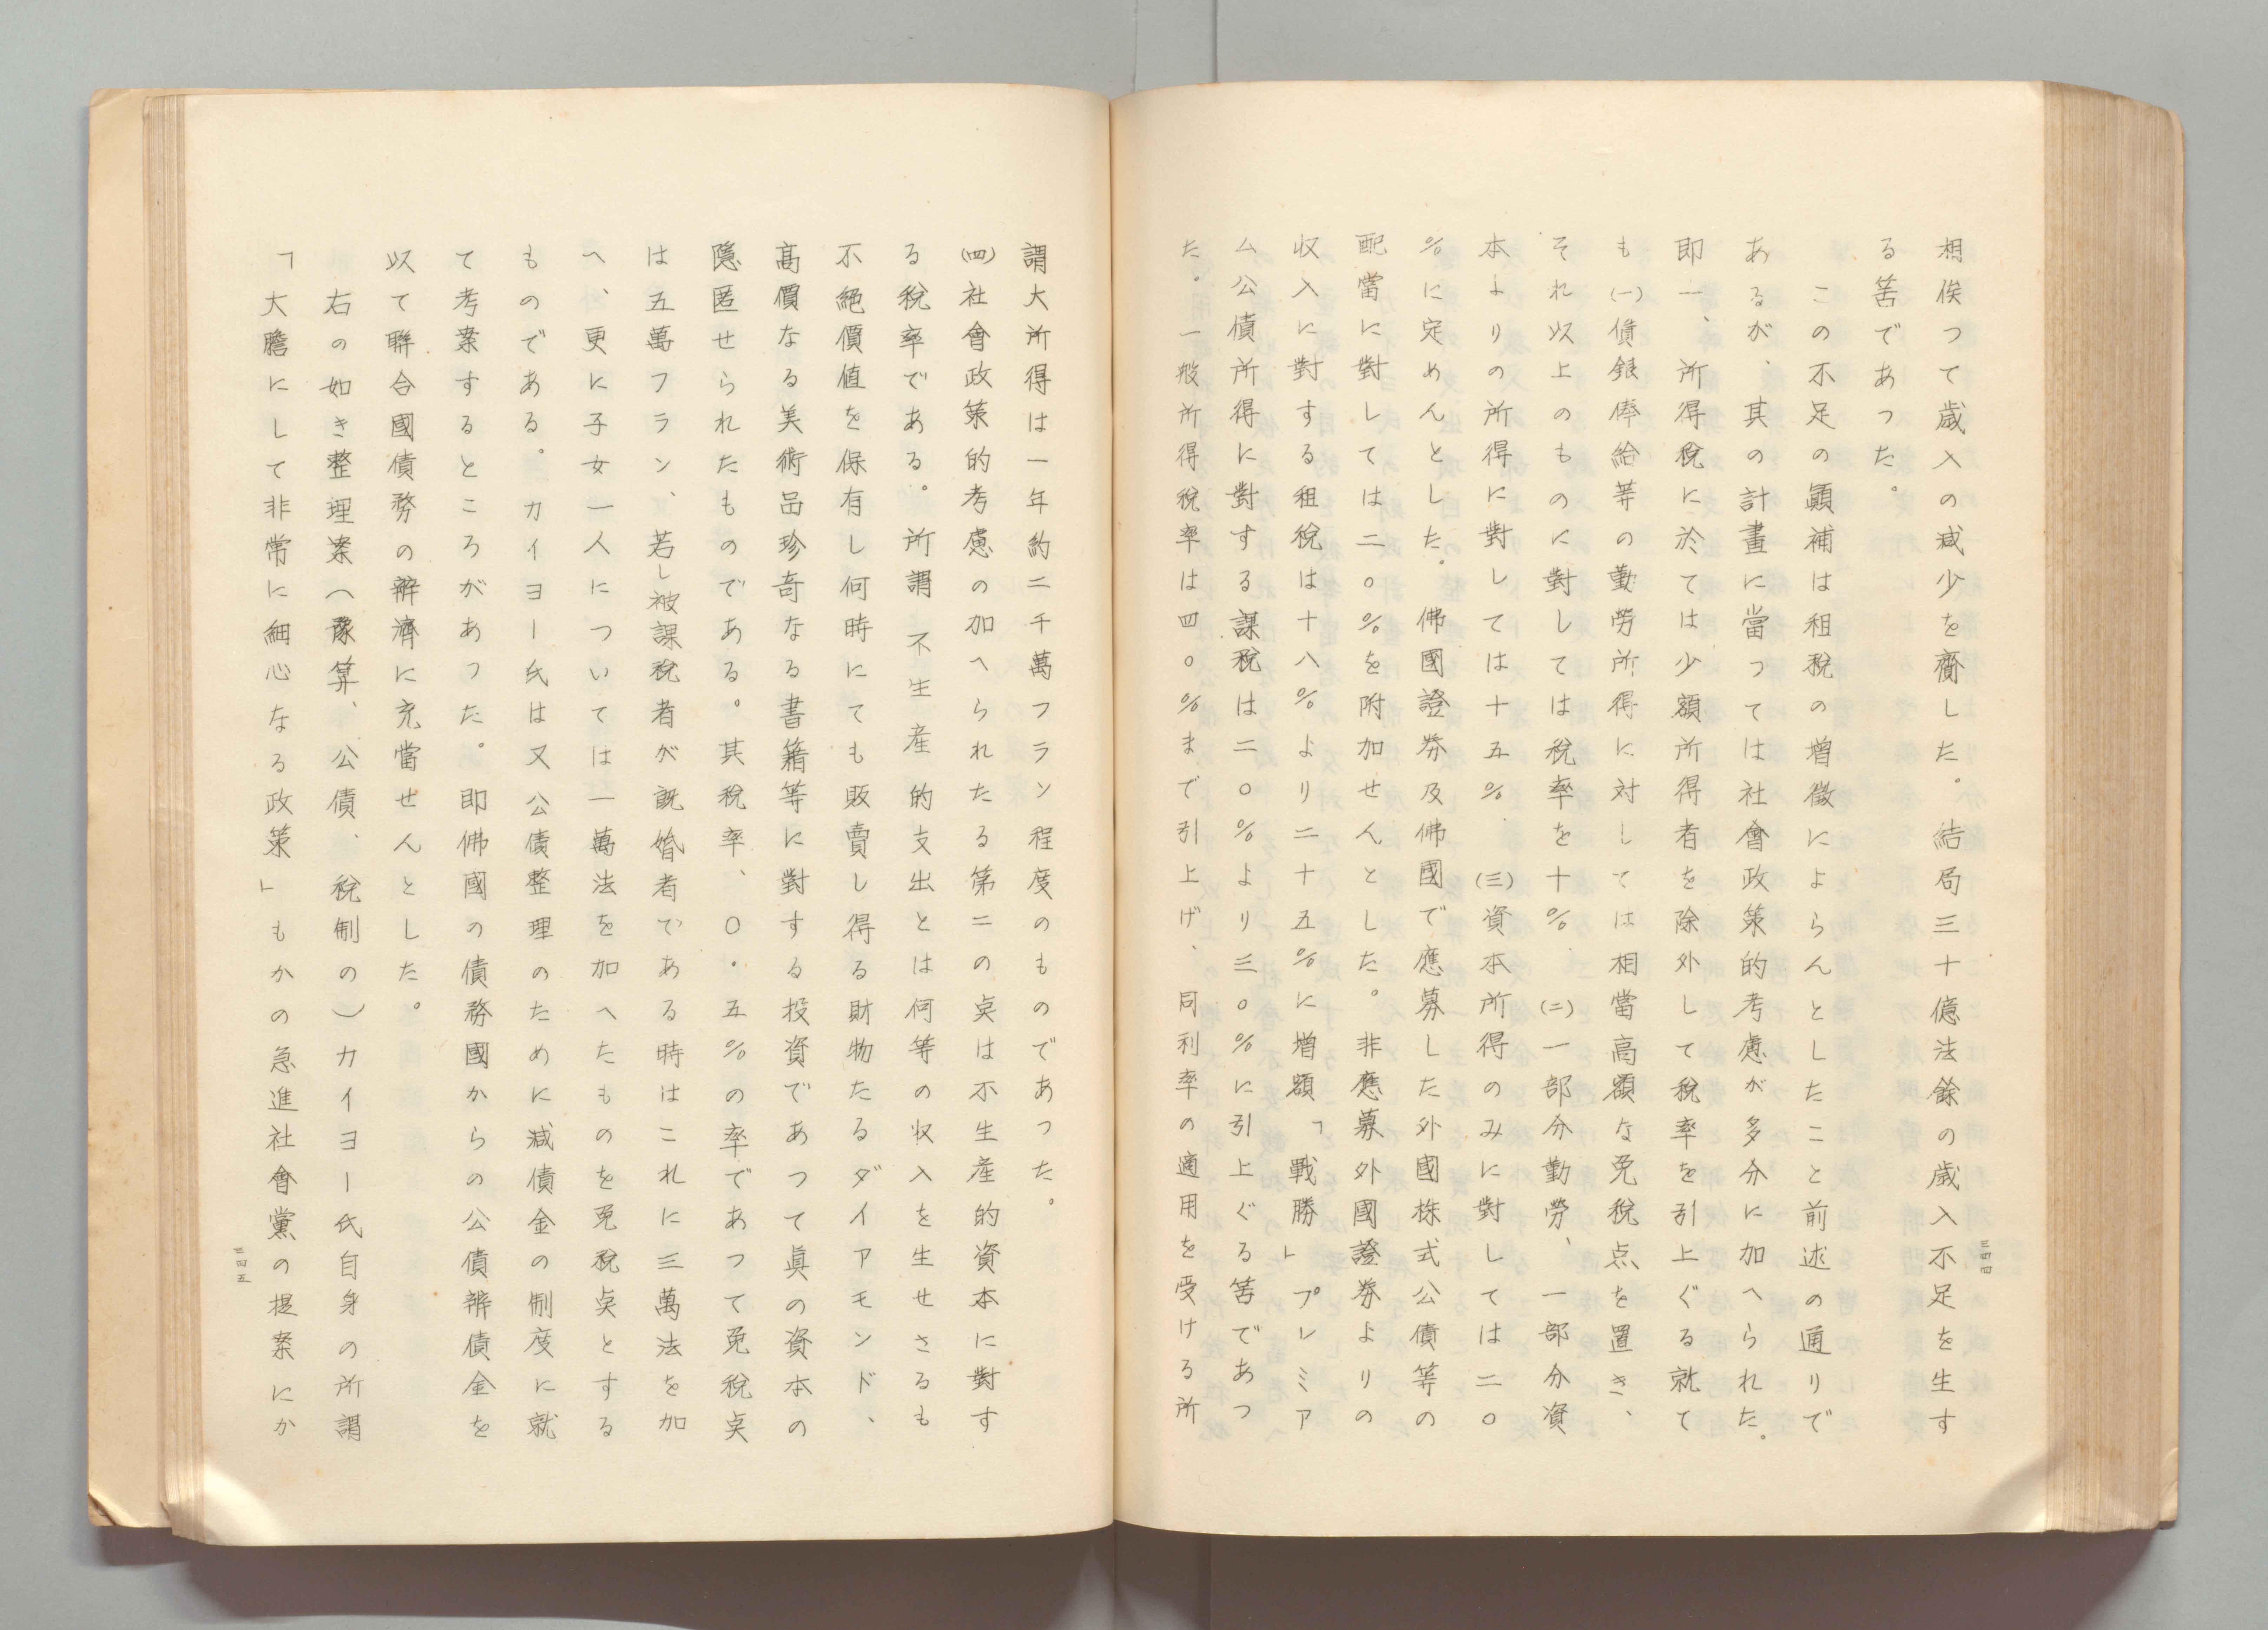 相俟つて歳入の減少を齎した。結局三十億法餘の歳入不足を生す
る筈であつた。
この不足の顚補は租税の増徴によらんとしたこと前述の通りで
あるが、其の計畫に當つては社會政策的考慮が多分に加へられた。
即一、所得税に於ては少額所得者を除外して税率を引上ぐる就て
も(一)賃銀俸給等の勤勞所得に対しては相當高額な免税点を置き、
それ以上のものに對しては税率を十%、(二)一部分勤勞、一部分資
本よりの所得に對しては十五%、(三)資本所得のみに對しては二〇
%に定めんとした。佛國證券及佛國で應募した外國株式公債等の
配當に對しては二〇%を附加せんとした。非應募外國證券よりの
収入に對する租税は十八%より二十五%に増額「戰勝」プレミア
ム公債所得に對する課税は二〇%より三〇%に引上ぐる筈であつ
た。一般所得税率は四〇%まで引上げ、同利率の適用を受ける所
三四四
謂大所得は一年約二千萬フラン程度のものであつた。
(四)社會政策的考慮の加へられたる第二の奌は不生産的資本に對す
る税率である。所謂不生産的支出とは何等の収入を生せさるも
不絕價値を保有し何時にても販賣し得る財物たるダイアモンド、
高價なる美術品珍奇なる書籍等に對する投資であつて眞の資本の
隱匿せられたものである。其税率、〇・五%の率であつて免税奌
は五萬フラン、若し被課税者が既婚者である時はこれに三萬法を加
へ、更に子女一人については一萬法を加へたものを免税奌とする
ものである。カイヨー氏は又公債整理のために減債金の制度に就
て考案するところがあつた。即佛國の債務國からの公債辨債金を
以て聯合國債務の辨濟に充當せんとした。
右の如き整理案(豫算、公債、税制の)カイヨー氏自身の所謂
「大膽にして非常に細心なる政策」もかの急進社會黨の提案にか
三四五